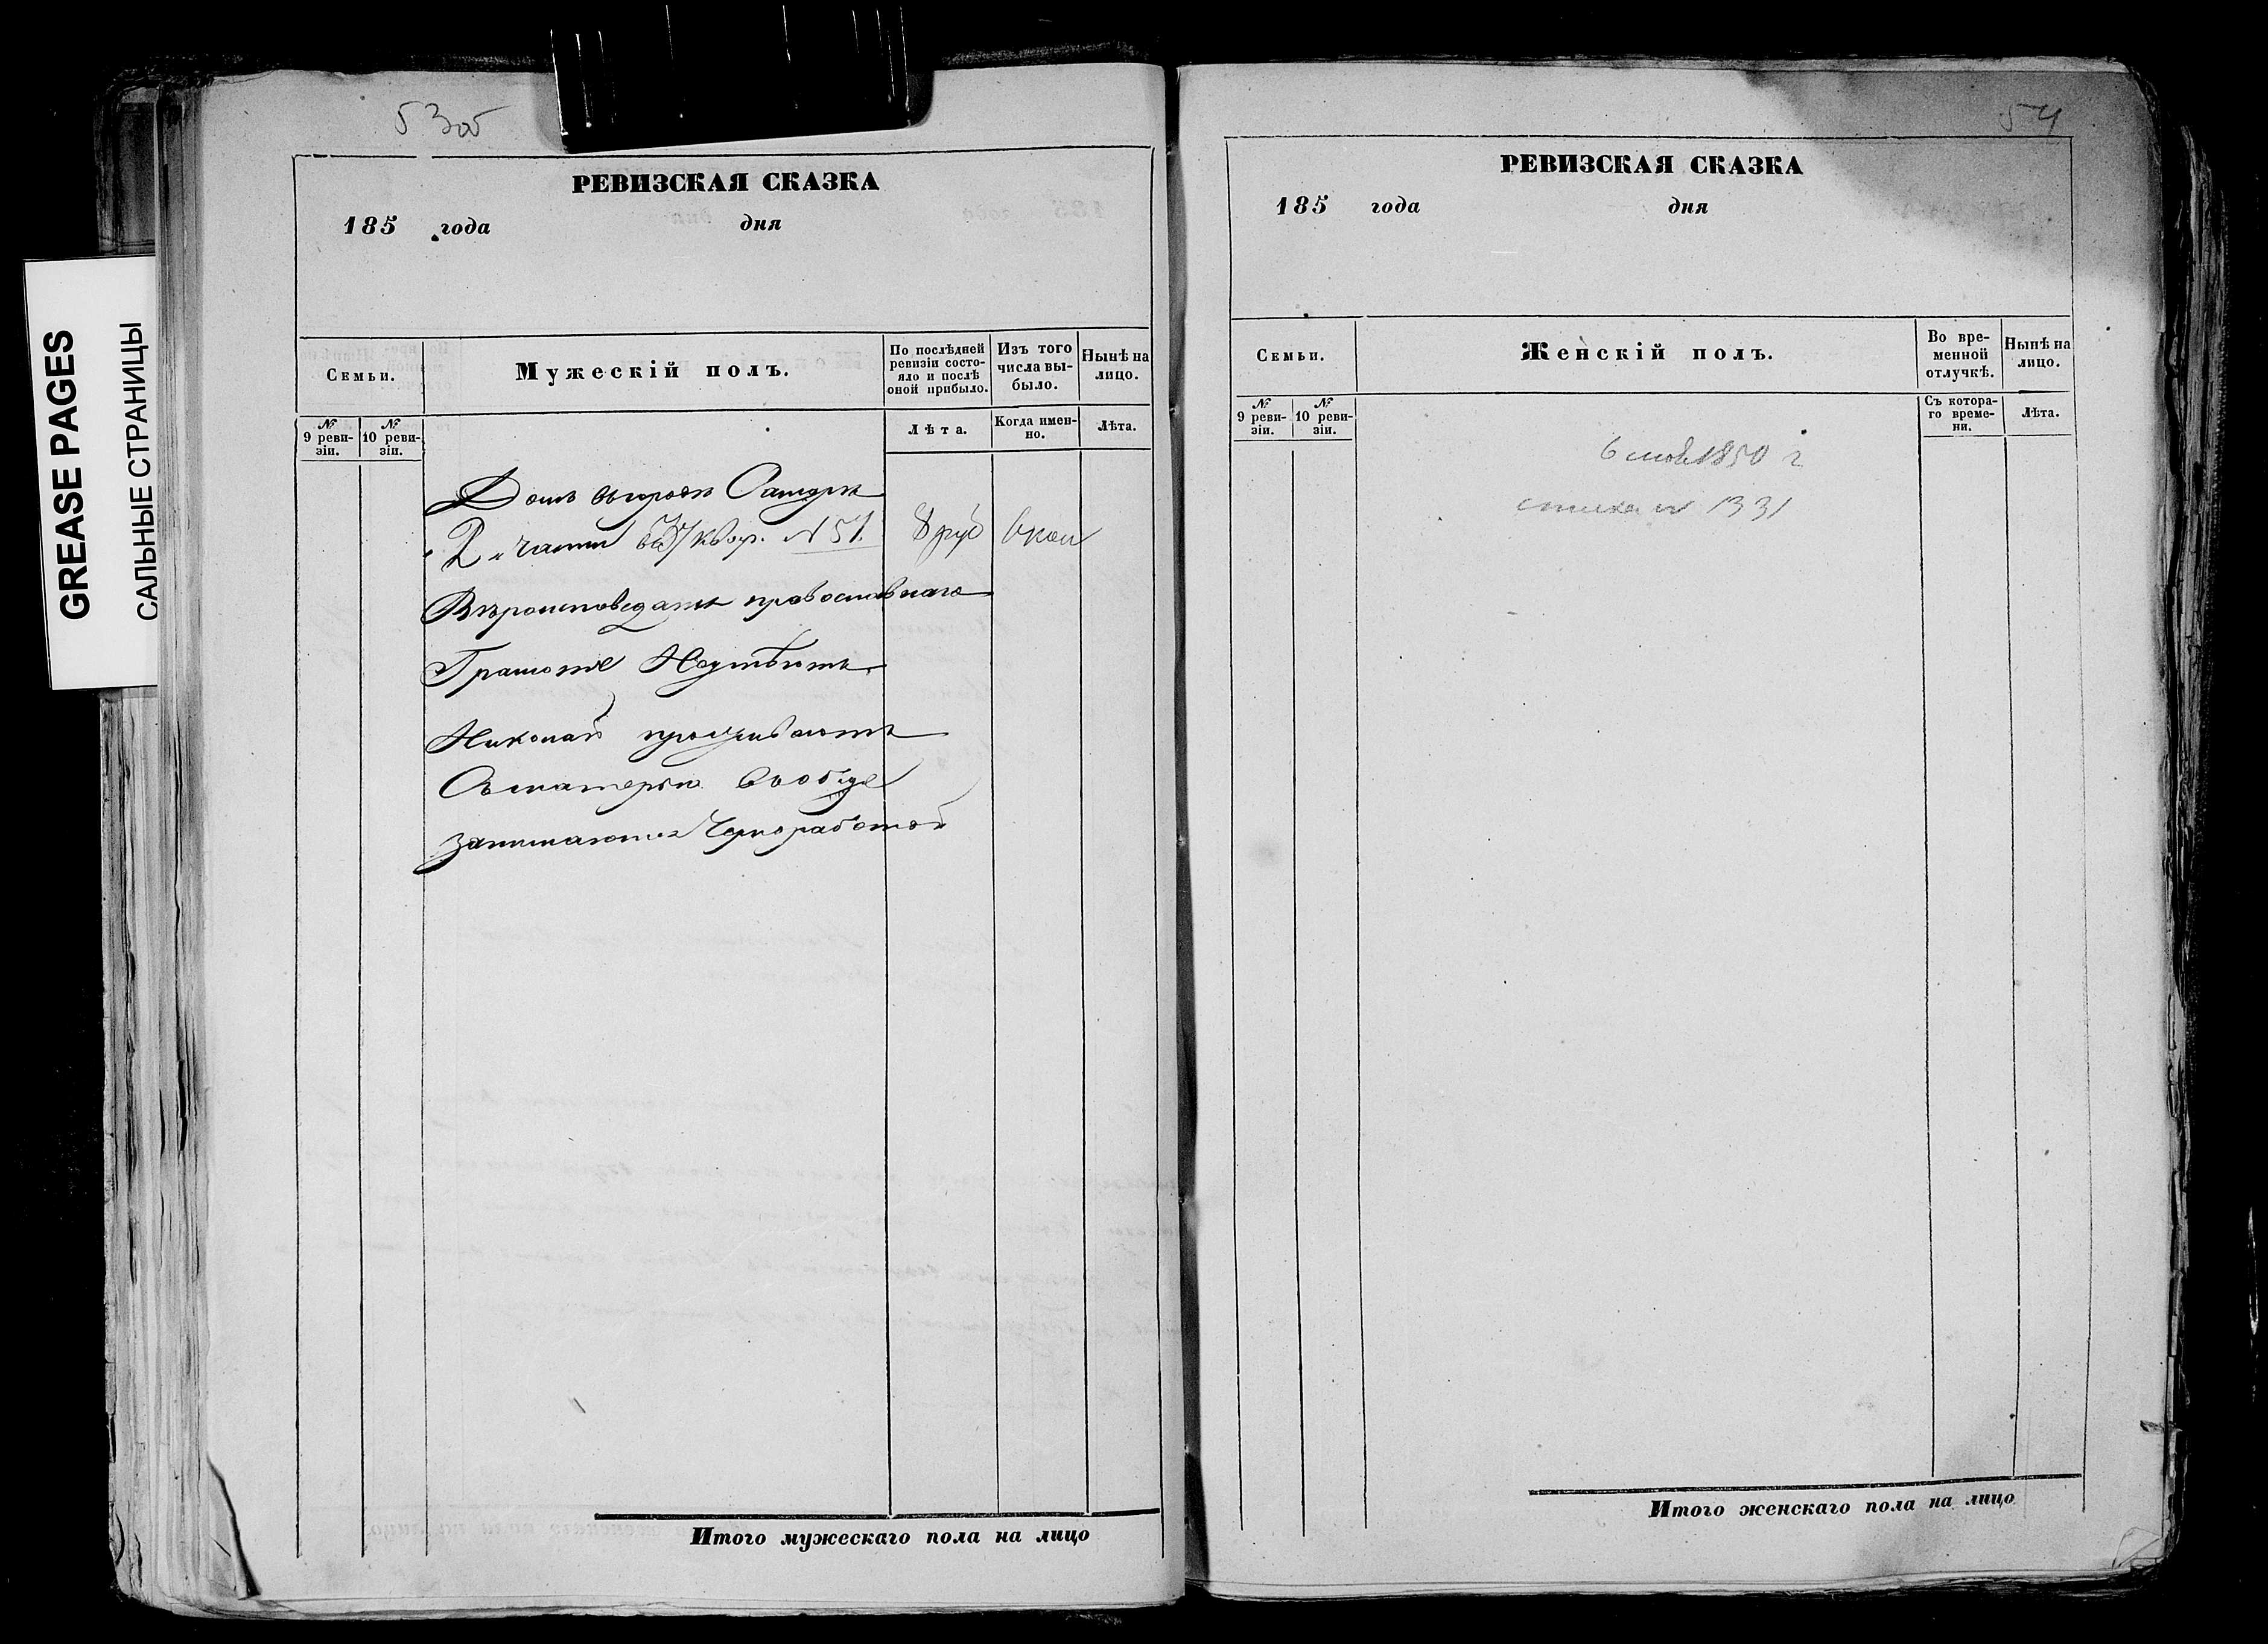 GREASE PAGES
САЛЬНЫЕ СТРАНИЦЫ
53об
РЕВИЗСКАЯ СКАЗКА
185 года дня
Семьи.
Мужескій полъ.
По послѣдней ревизіи состояло и послѣ оной прибыло.
Изъ того числа выбыло.
Нынѣ на лицо.
№ 9 ревизіи.
№ 10 ревизіи.
Лѣта.
Когда именно.
Лѣта.
Домъ въ городѣ
2й части въ 37 квар. N 51. 8 руб 6 коп
Вѣроисповеданія православнаго
Грамоте Неумѣютъ
Николай проживаютъ
Съ матерью вообще
занимаются Чернработой
Итого мужескаго пола на лицо
54
РЕВИЗСКАЯ СКАЗКА
185 года дня
Семьи.
Женскій полъ.
Во временной отлучкѣ.
Нынѣ на лицо.
№ 9 ревизіи.
№ 10 ревизіи.
Съ котораго времени.
Лѣта.
1850 г
1331
Итого женскаго пола на лицо